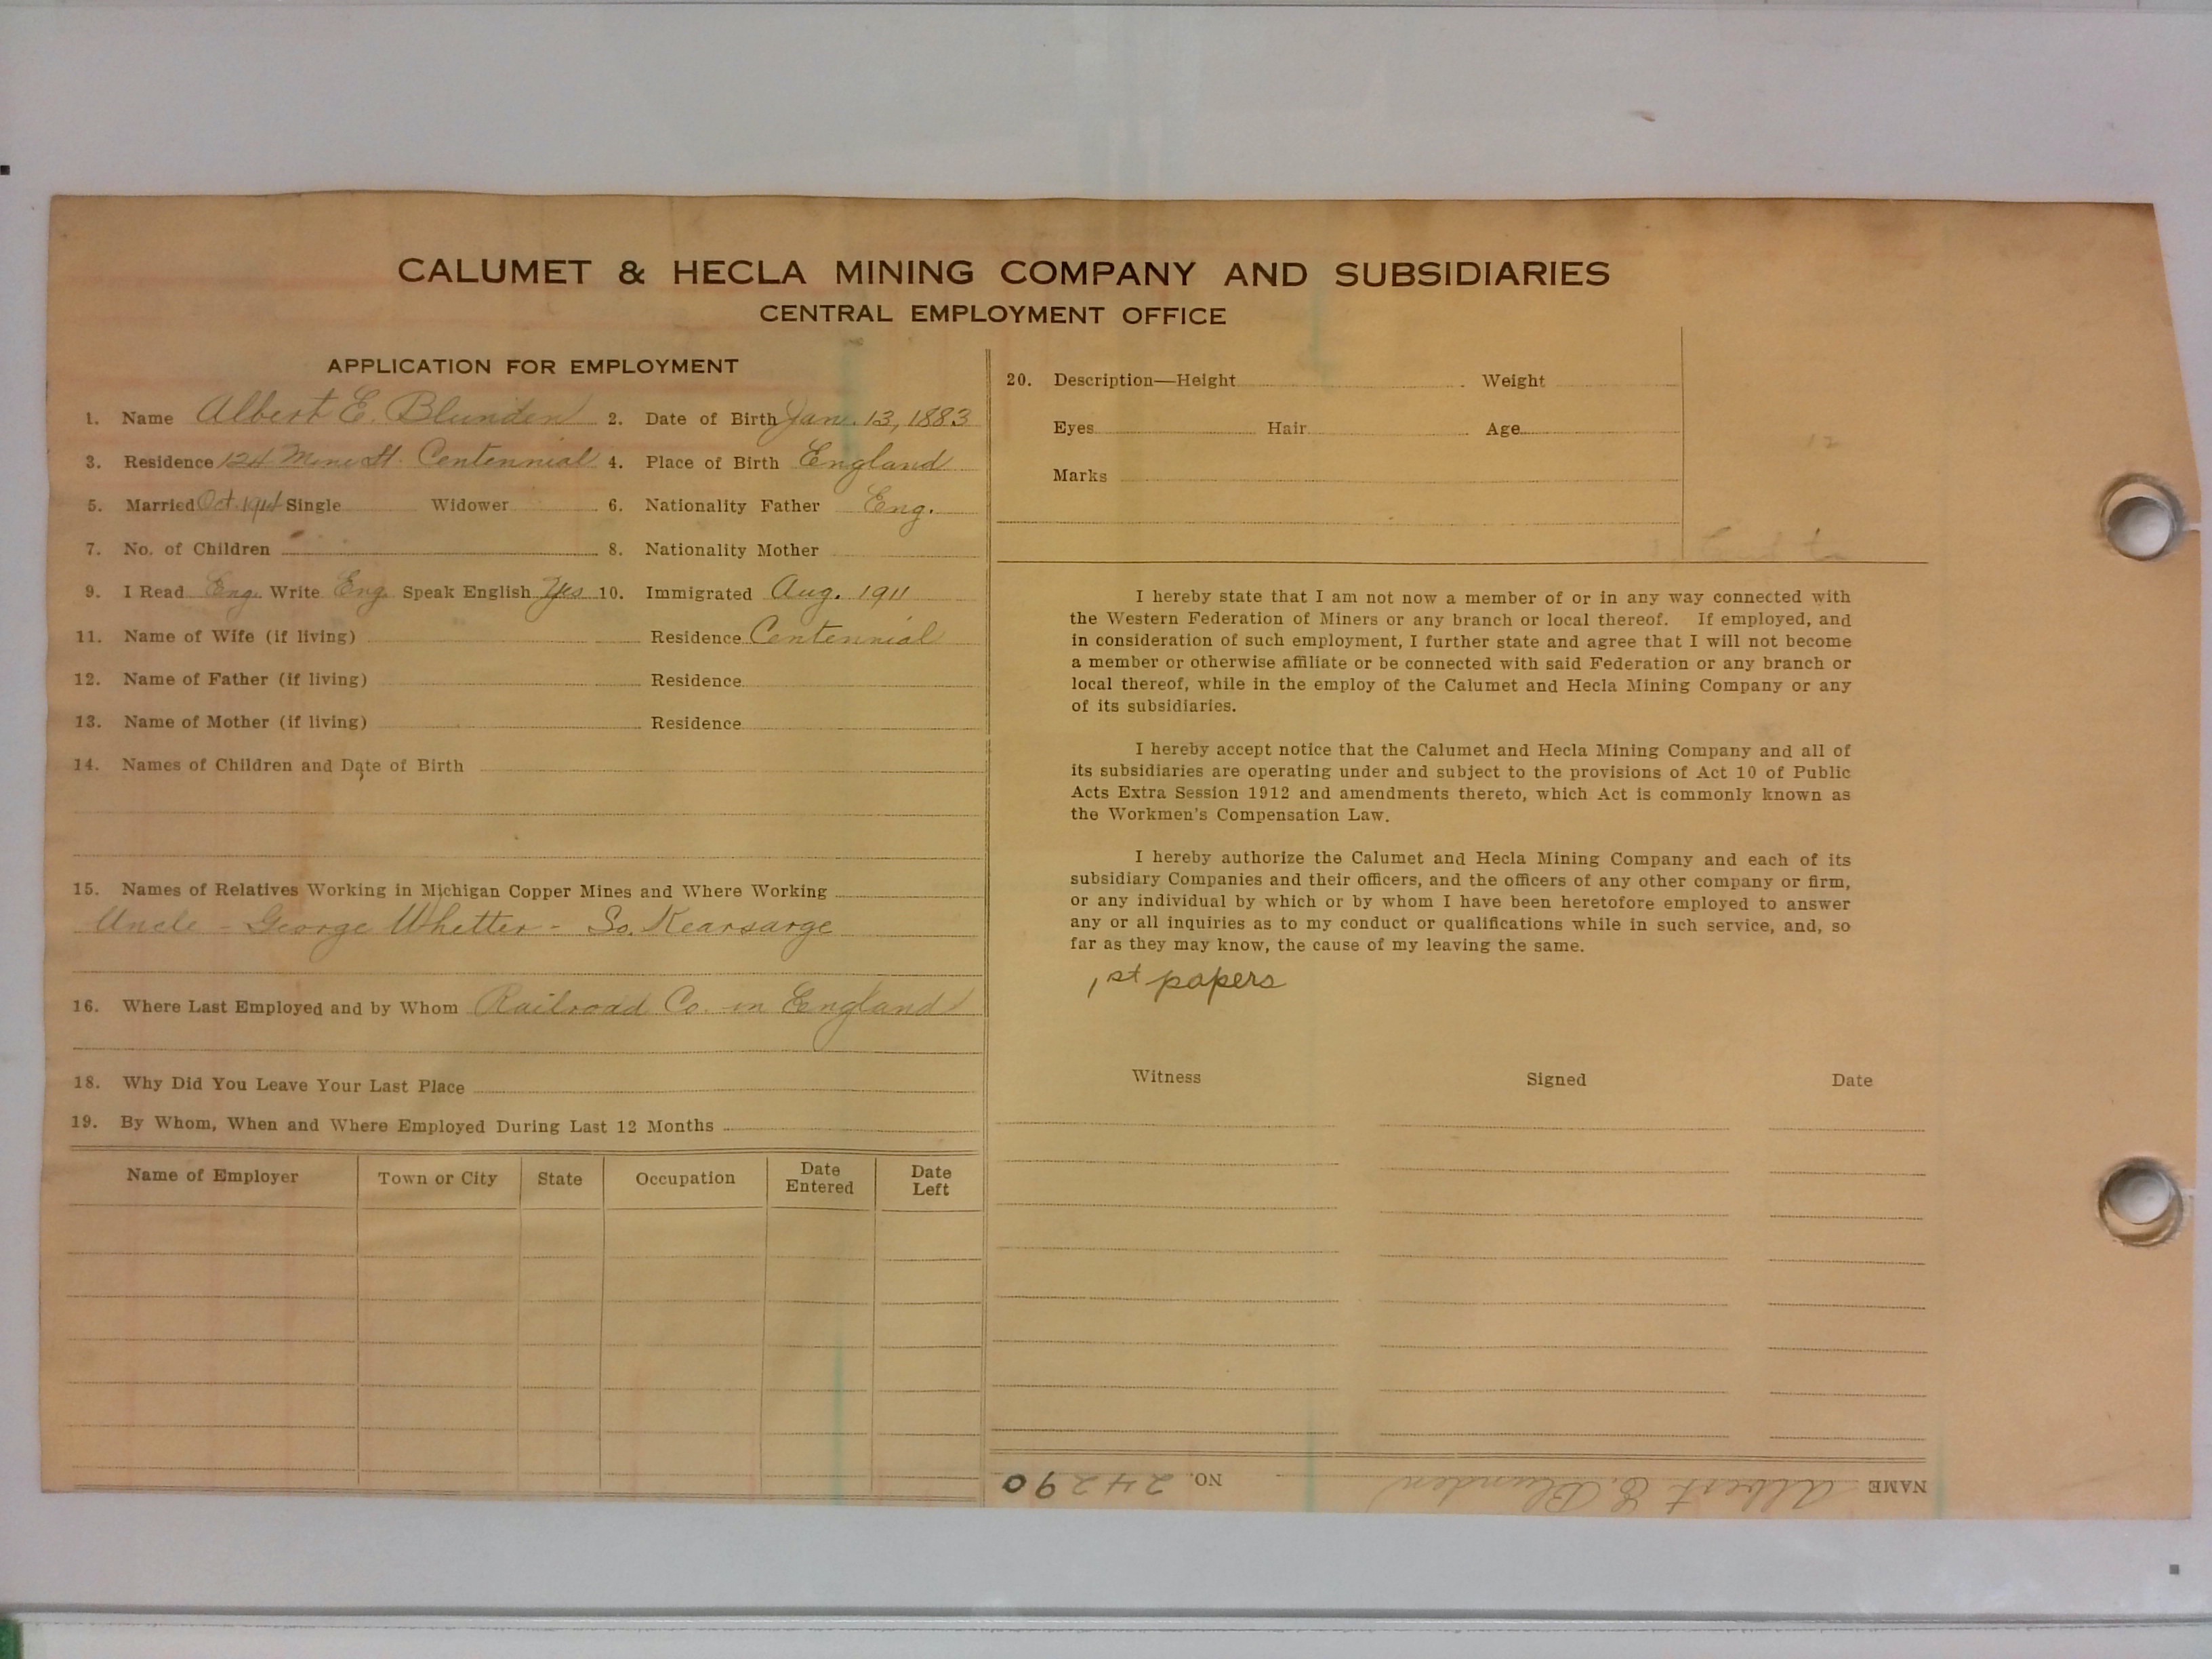 CALUMET & HECLA MINING COMPANY AND SUBSIDIARIES
CENTRAL EMPLOYMENT OFFICE
APPLICATION FOR EMPLOYMENT
1. Name Albert E. Blunden 2. Date of Birth Jan. 13, 1883
3. Residence 124 Mine St. Centennial 4. Place of Birth England
5. Married Oct. 1914 Single Widower 6. Nationality Father Eng.
7. No. of Children 8. Nationality Mother
9. I Read Eng. Write Eng. Speak English Yes 10. Immigrated Aug. 1911
11. Name of Wife (if living) Residence Centennial
12. Name of Father (if living) Residence
13. Name of Mother (if living) Residence
14. Names of Children and Date of Birth
15. Names of Relatives Working in Michigan Copper Mines and Where Working
Uncle - George Whetter - So. Kearsarge
16. Where Last Employed and by Whom Railroad Co. in England
18. Why Did You Leave Your Last Place
19. By Whom, When and Where Employed During Last 12 Months
Name of Employer Town or City State Occupation Date Entered Date Left
20. Description—Height Weight
Eyes Hair Age
Marks
12
I hereby state that I am not now a member of or in any way connected with
the Western Federation of Miners or any branch or local thereof. If employed, and
in consideration of such employment, I further state and agree that I will not become
a member or otherwise affiliate or be connected with said Federation or any branch or
local thereof, while in the employ of the Calumet and Hecla Mining Company or any
of its subsidiaries.
I hereby accept notice that the Calumet and Hecla Mining Company and all of
its subsidiaries are operating under and subject to the provisions of Act 10 of Public
Acts Extra Session 1912 and amendments thereto, which Act is commonly known as
the Workmen's Compensation Law.
I hereby authorize the Calumet and Hecla Mining Company and each of its
subsidiary Companies and their officers, and the officers of any other company or firm,
or any individual by which or by whom I have been heretofore employed to answer
any or all inquiries as to my conduct or qualifications while in such service, and, so
far as they may know, the cause of my leaving the same.
1st papers
Witness Signed Date
NAME Albert E. Blunden NO. 24290